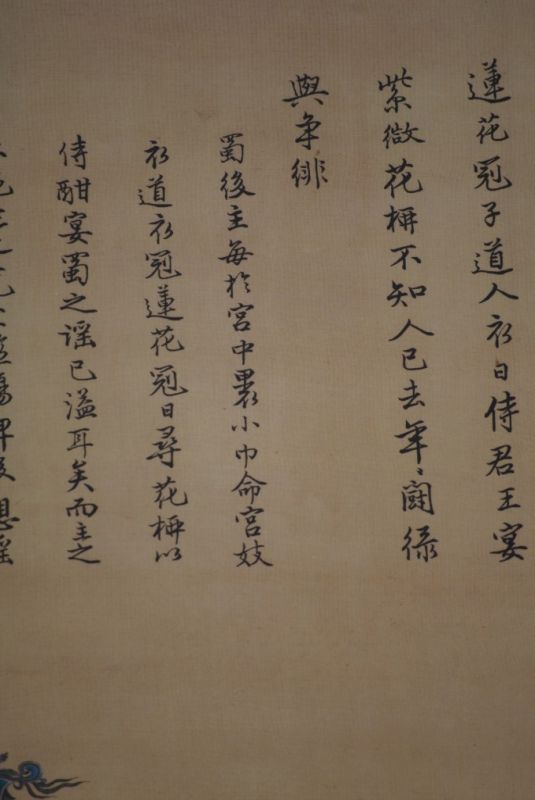 蓮花冠子道人衣日侍君王宴
紫微花柳不知人已去年々鬪綠
與争緋
蜀後主每於宮中裹小巾命宮妓
衣道衣冠蓮花冠日尋花柳以
侍酣宴蜀之謠已溢耳矣而主之